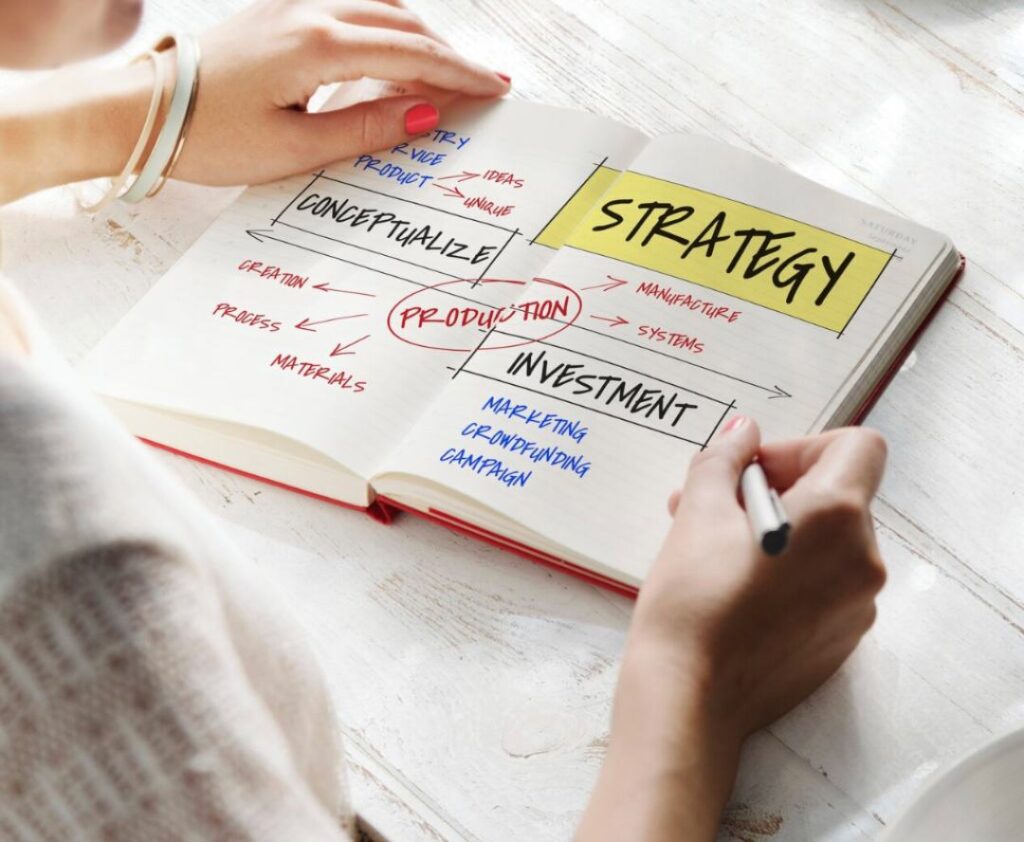 STRY
RVICE
PRODUCT
IDEAS
UNIQUE
CONCEPTUALIZE
CREATION
PROCESS
MATERIALS
PRODUCTION
STRATEGY
SATURDAY
MANUFACTURE
SYSTEMS
INVESTMENT
MARKETING
CROWDFUNDING
CAMPAIGN